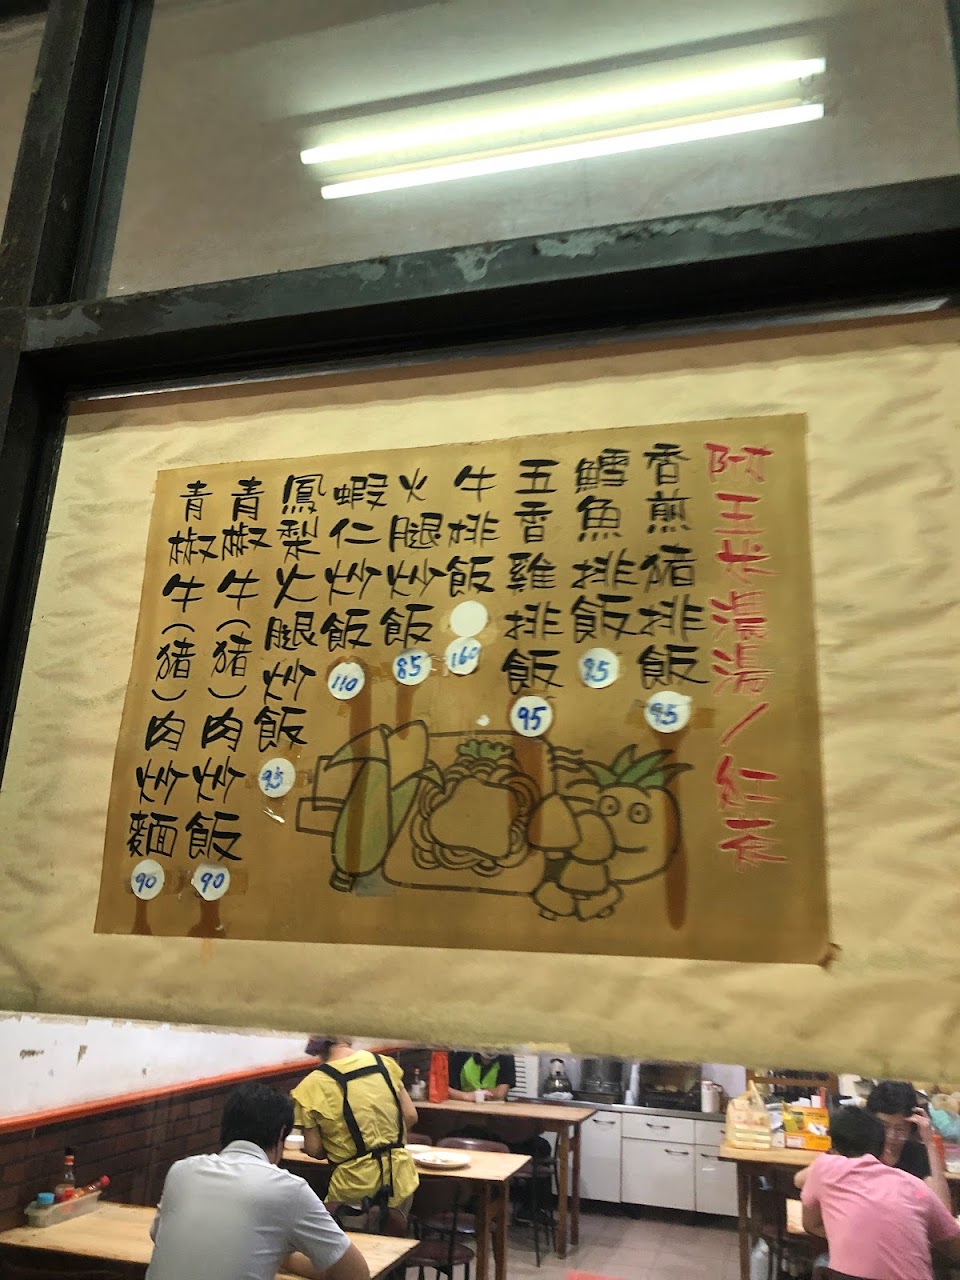 附玉米濃湯/紅茶
香煎猪排飯 95
鱈魚排飯 95
五香雞排飯 95
牛排飯 160
火腿炒飯 85
蝦仁炒飯 110
鳳梨火腿炒飯 95
青椒牛(猪)肉炒飯 90
青椒牛(猪)肉炒麵 90